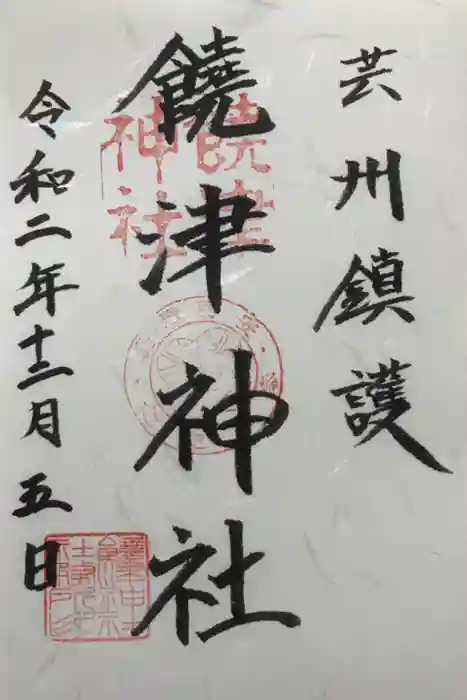 芸州鎮護
饒津神社
令和二年十二月五日
饒津
神社